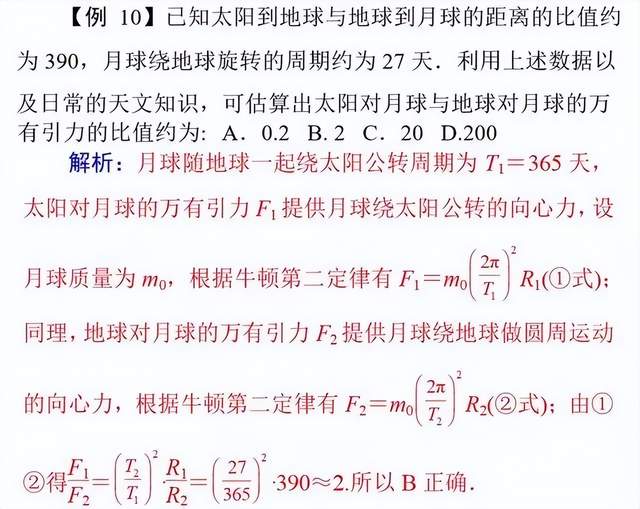 【例 10】已知太阳到地球与地球到月球的距离的比值约
为 390，月球绕地球旋转的周期约为 27 天．利用上述数据以
及日常的天文知识，可估算出太阳对月球与地球对月球的万
有引力的比值约为: A．0.2 B. 2 C．20 D.200
解析：月球随地球一起绕太阳公转周期为 T₁＝365 天，
太阳对月球的万有引力 F₁ 提供月球绕太阳公转的向心力，设
月球质量为 m₀，根据牛顿第二定律有 F₁＝m₀(2π/T₁)²R₁(①式)；
同理，地球对月球的万有引力 F₂ 提供月球绕地球做圆周运动
的向心力，根据牛顿第二定律有 F₂＝m₀(2π/T₂)²R₂(②式)；由①
②得F₁/F₂＝(T₂/T₁)²·R₁/R₂＝(27/365)²·390≈2.所以 B 正确．